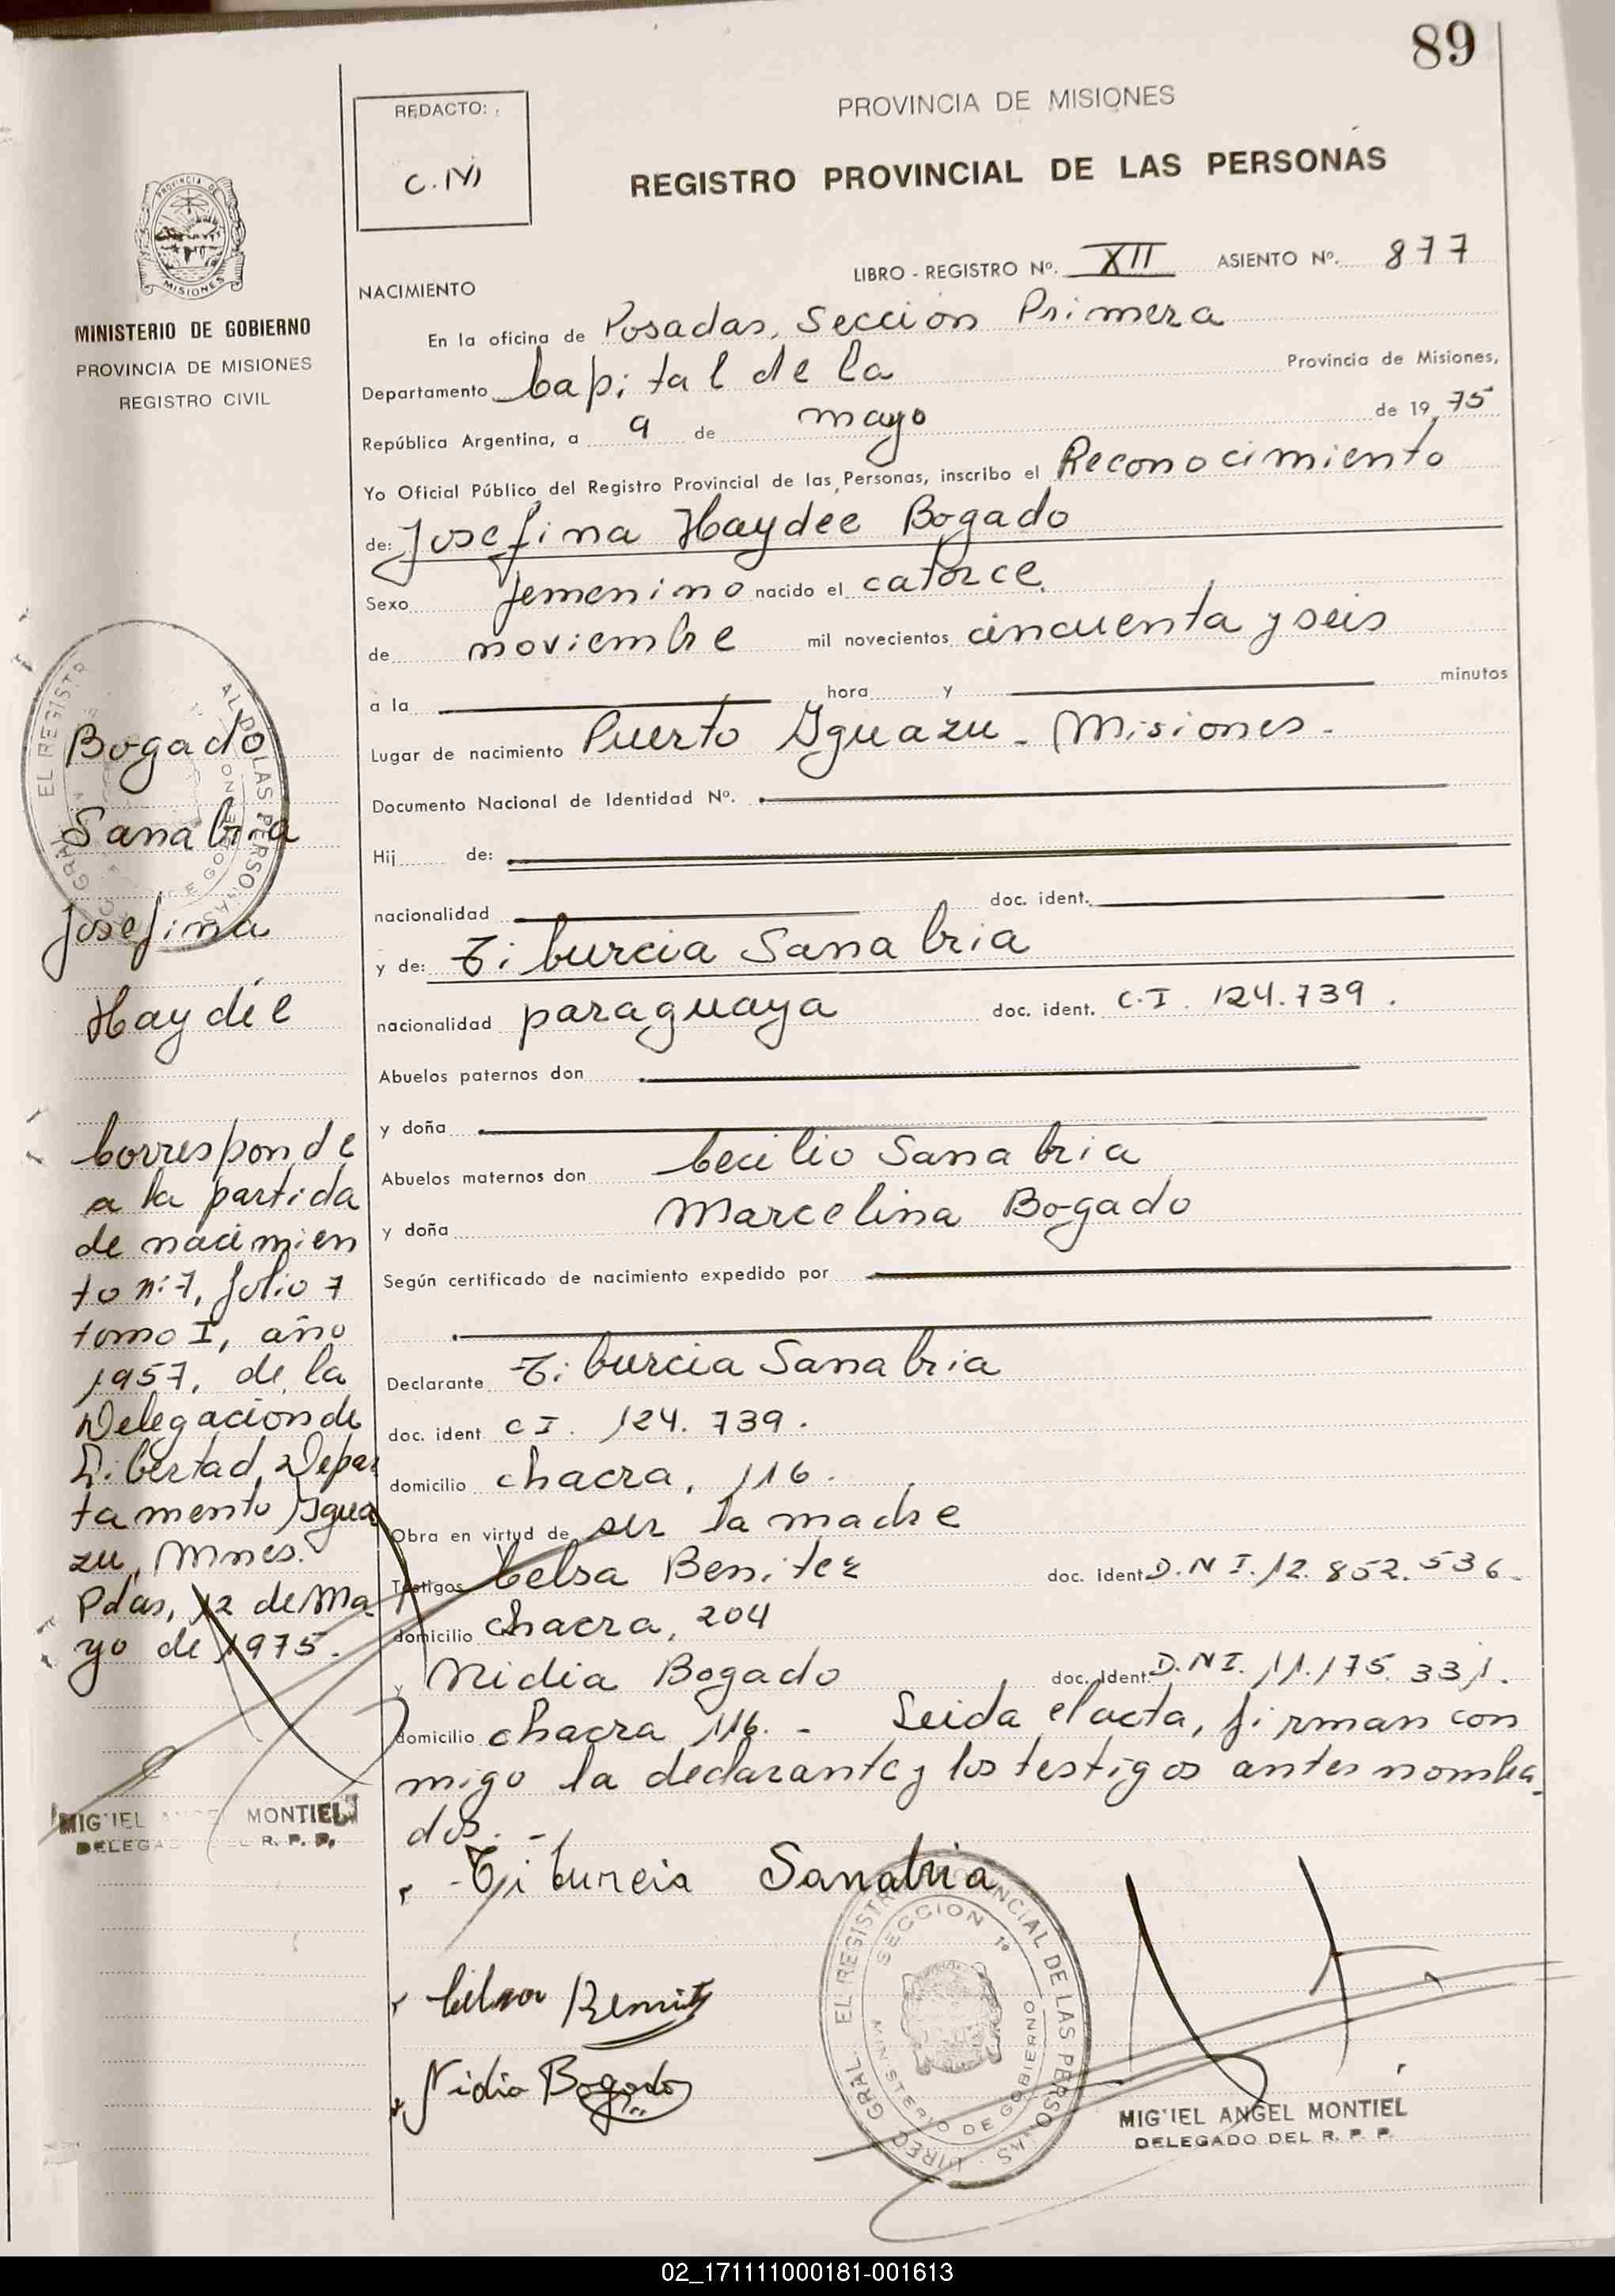 89
REDACTO:
C. M
PROVINCIA DE MISIONES
REGISTRO PROVINCIAL DE LAS PERSONAS
PROVINCIA DE
MISIONES
MINISTERIO DE GOBIERNO
PROVINCIA DE MISIONES
REGISTRO CIVIL
LIBRO - REGISTRO Nº. XII ASIENTO Nº. 877
NACIMIENTO
En la oficina de Posadas, Sección Primera
Departamento Capital de la Provincia de Misiones,
República Argentina, a 9 de mayo de 19 75
Yo Oficial Público del Registro Provincial de las Personas, inscribo el Reconocimiento
de: Josefina Haydee Bogado
Sexo femenino nacido el catorce
de noviembre mil novecientos cincuenta y seis
a la hora y minutos
Lugar de nacimiento Puerto Iguazu - Misiones.-
Documento Nacional de Identidad Nº.
Hij de:
nacionalidad doc. ident.
y de: Tiburcia Sanabria
nacionalidad paraguaya doc. ident. C.I. 124.739.
Abuelos paternos don
y doña
Abuelos maternos don Cecilio Sanabria
y doña Marcelina Bogado
Según certificado de nacimiento expedido por
Declarante Tiburcia Sanabria
doc. ident C I. 124. 739.
domicilio chacra, 116.
Obra en virtud de ser la madre
Testigos Celsa Benitez doc. ident D.N I. 12. 852. 536.
domicilio chacra, 204
y Nidia Bogado doc. Ident. D.N I. 11.175. 331.
domicilio chacra 116. - Leida el acta, firman con
migo la declarante y los testigos antes nombra
dos. -
Tiburcia Sanabria
Celsa Benitez
Nidia Bogado
MIGUEL ANGEL MONTIEL
DELEGADO DEL R. P. P.
SECCION 1º
MINISTERIO DE GOBIERNO
Bogado
Sanabria
Josefina
Haydée
Corresponde
a la partida
de nacimien
to nº 7, folio 7
tomo I, año
1957, de la
Delegación de
Libertad, Depar
tamento Igua
zu, Mnes.
Pdas, 12 de Ma
yo de 1975.
MIGUEL MONTIEL
DELEGADO DEL R. P. P.
02_171111000181-001613